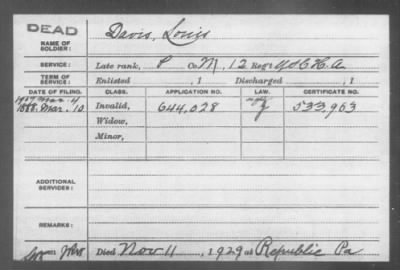 DEAD
NAME OF SOLDIER: Davis, Louis
SERVICE: Late rank, P Co M, 12 Reg't U S C H. A
TERM OF SERVICE: Enlisted , 1 Discharged , 1
DATE OF FILING. CLASS. APPLICATION NO. LAW. CERTIFICATE NO.
1888. Mar. 10 Invalid, 644,028 533,963
Widow,
Minor,
ADDITIONAL SERVICES:
REMARKS:
Died Nov 11, 1929 at Republic Pa